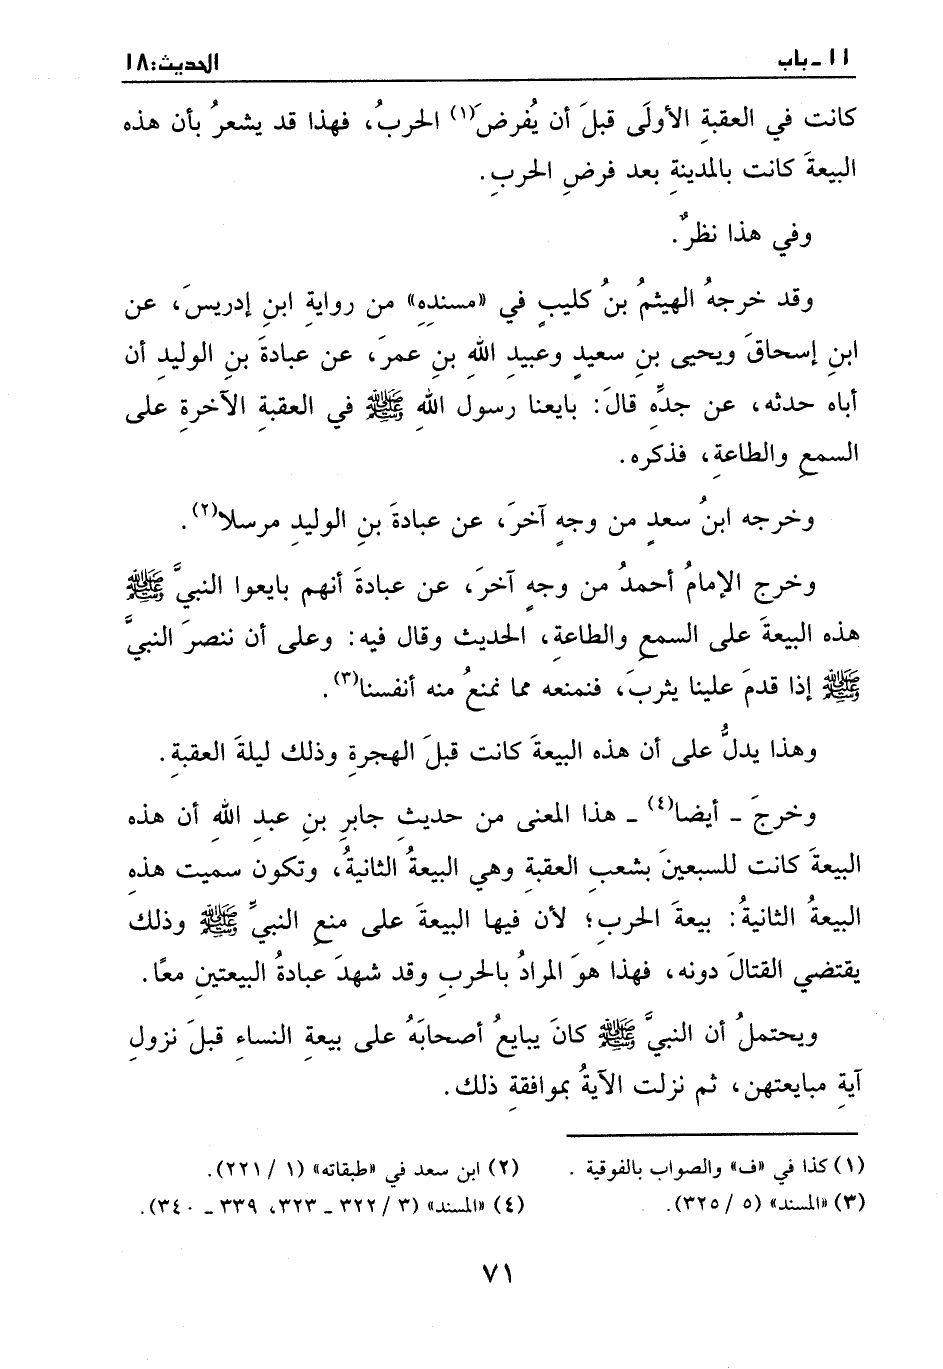 ١١ - باب الحديث: ١٨
كانت في العقبةِ الأولَى قبلَ أن يُفرضَ(١) الحربُ، فهذا قد يشعرُ بأن هذه
البيعةَ كانت بالمدينةِ بعد فرضِ الحربِ.
وفي هذا نظرٌ.
وقد خرجهُ الهيثمُ بنُ كليبٍ في «مسندِهِ» من روايةِ ابنِ إدريسَ، عن
ابنِ إسحاقَ ويحيى بنِ سعيدٍ وعبيدِ اللهِ بنِ عمرَ، عن عبادةَ بنِ الوليدِ أن
أباه حدثه، عن جدِّهِ قالَ: بايعنا رسول اللهِ ﷺ في العقبةِ الآخرةِ على
السمعِ والطاعةِ، فذكره.
وخرجه ابنُ سعدٍ من وجهٍ آخرَ، عن عبادةَ بنِ الوليدِ مرسلا(٢).
وخرج الإمامُ أحمدُ من وجهٍ آخرَ، عن عبادةَ أنهم بايعوا النبيَّ ﷺ
هذه البيعةَ على السمعِ والطاعةِ، الحديث وقال فيه: وعلى أن ننصرَ النبيَّ
ﷺ إذا قدمَ علينا يثربَ، فنمنعه مما نمنعُ منه أنفسنا(٣).
وهذا يدلُّ على أن هذه البيعةَ كانت قبلَ الهجرةِ وذلك ليلةَ العقبةِ.
وخرجَ - أيضا(٤) - هذا المعنى من حديثِ جابرِ بنِ عبدِ اللهِ أن هذه
البيعةَ كانت للسبعينَ بشعبِ العقبةِ وهي البيعةُ الثانيةُ، وتكون سميت هذه
البيعةُ الثانيةُ: بيعةَ الحربِ؛ لأن فيها البيعةَ على منعِ النبيِّ ﷺ وذلك
يقتضي القتالَ دونه، فهذا هوَ المرادُ بالحربِ وقد شهدَ عبادةُ البيعتينِ معًا.
ويحتملُ أن النبيَّ ﷺ كانَ يبايعُ أصحابَهُ على بيعةِ النساءِ قبلَ نزولِ
آيةِ مبايعتهن، ثم نزلت الآيةُ بموافقةِ ذلك.
(١) كذا في «ف» والصواب بالفوقية . (٢) ابن سعد في «طبقاته» (١ / ٢٢١).
(٣) «المسند» (٥ / ٣٢٥). (٤) «المسند» (٣ / ٣٢٢ - ٣٢٣، ٣٣٩ - ٣٤٠).
٧١